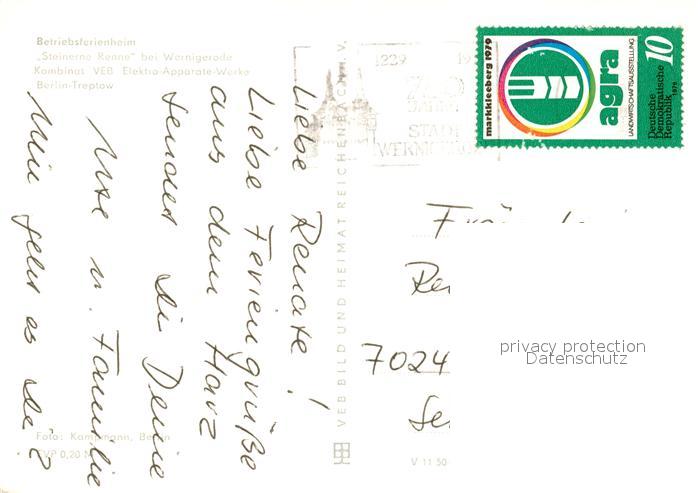 Betriebsferienheim
„Steinerne Renne" bei Wernigerode
Kombinat VEB Elektro-Apparate-Werke
Berlin-Treptow
Liebe Renate!
Liebe Feriengrüße
aus dem Harz
sendet dir Deine
u. Familie
geht es dir?
Foto: Kampmann, Berlin
EVP 0,20 M
VEB BILD UND HEIMAT REICHENBACH i. V.
V 11 50
1229
STADT
WERNIGERODE
markkleeberg 1979
agra
LANDWIRTSCHAFTSAUSSTELLUNG
10
Deutsche
Demokratische
Republik
1979
7024
privacy protection
Datenschutz